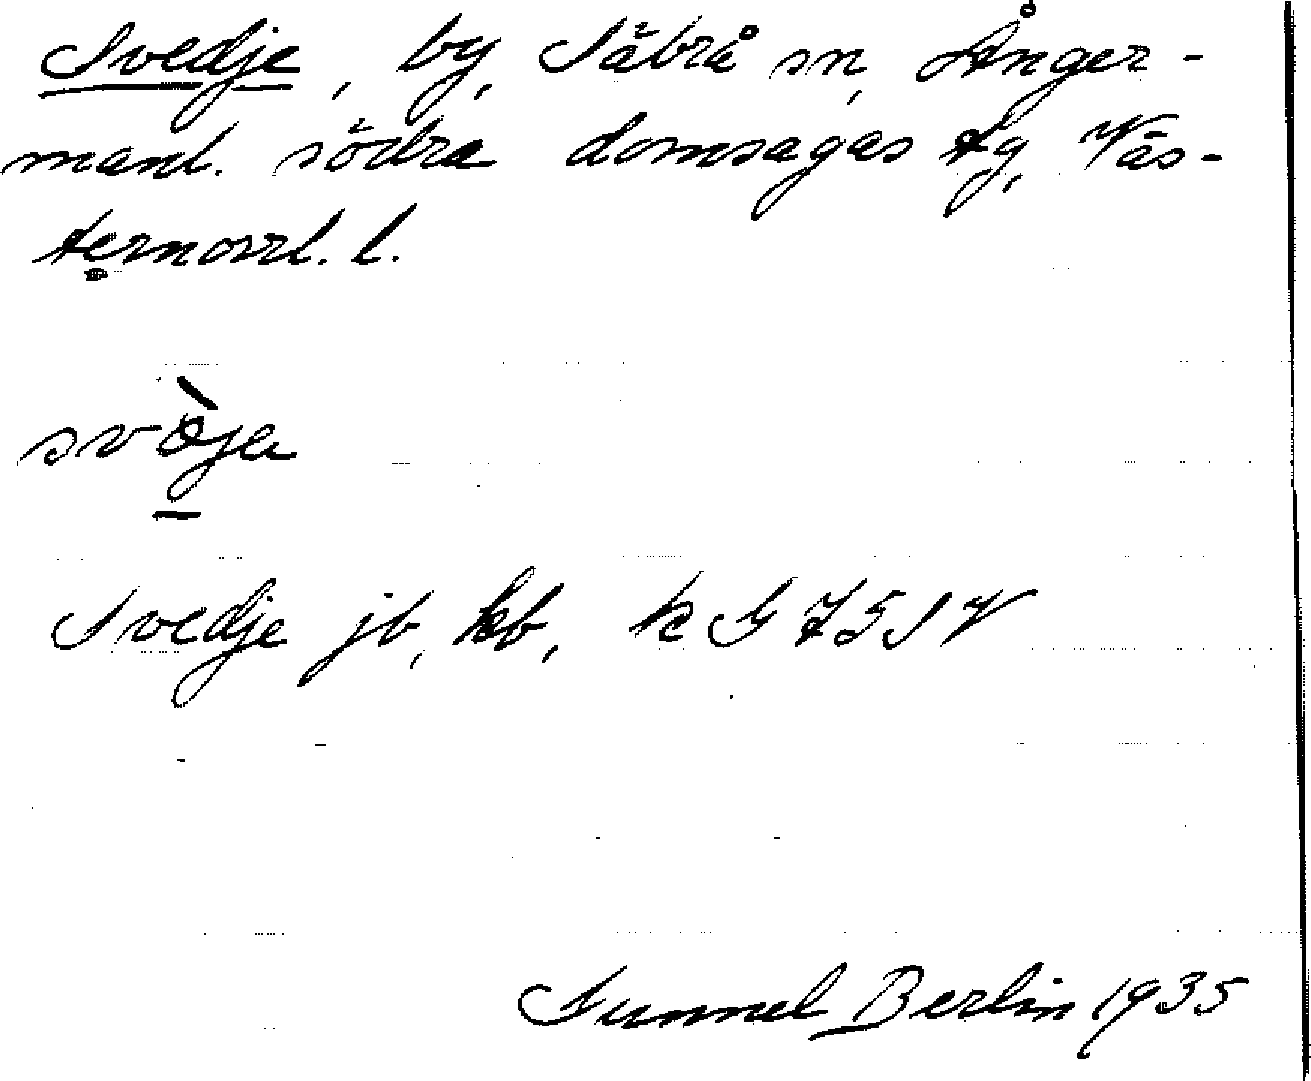 Svedje, by, Säbrå sn, Ånger-
manl. södra domsagas tg, Väs-
ternorrl. l.
svèja
Svedje jb, kb, k G 75 SV
Gunnel Berlin 1935